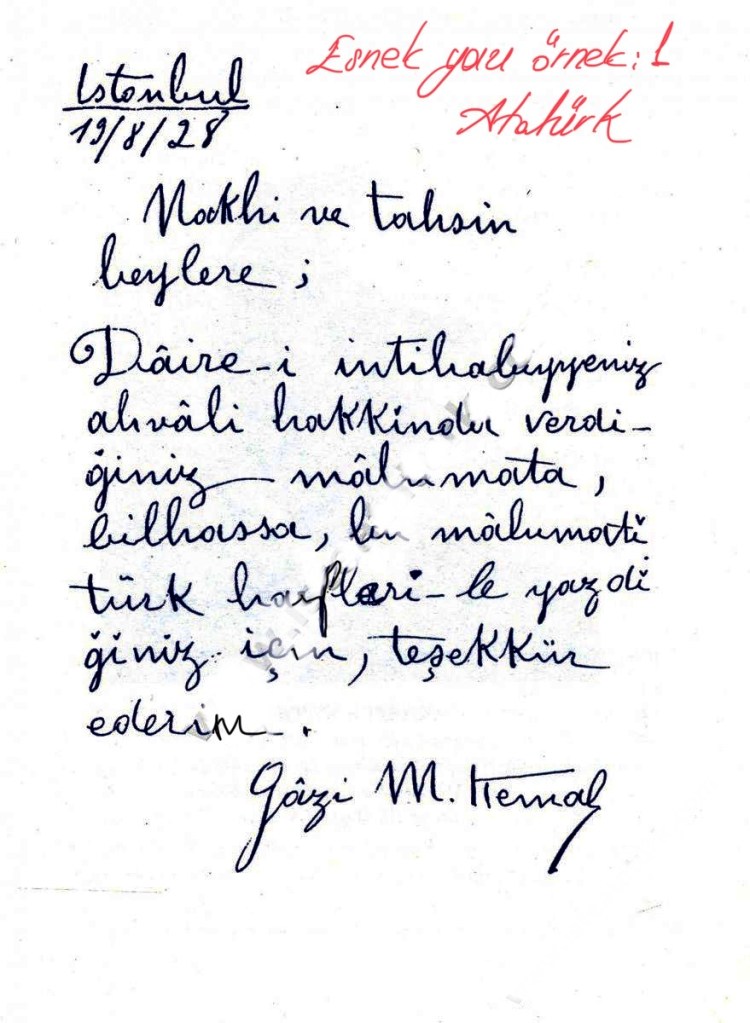 Esnek yazı örnek: 1
Atatürk
Istanbul
19/8/28
Nakhi ve tahsin
beylere ;
Dâire-i intihabıyyeniz
ahvâli hakkinda verdi-
ğiniz mâlumata,
bilhassa, bu mâlumati
türk harfleri-le yazdi
ğiniz için, teşekkür
ederim.
Gâzi M. Kemal